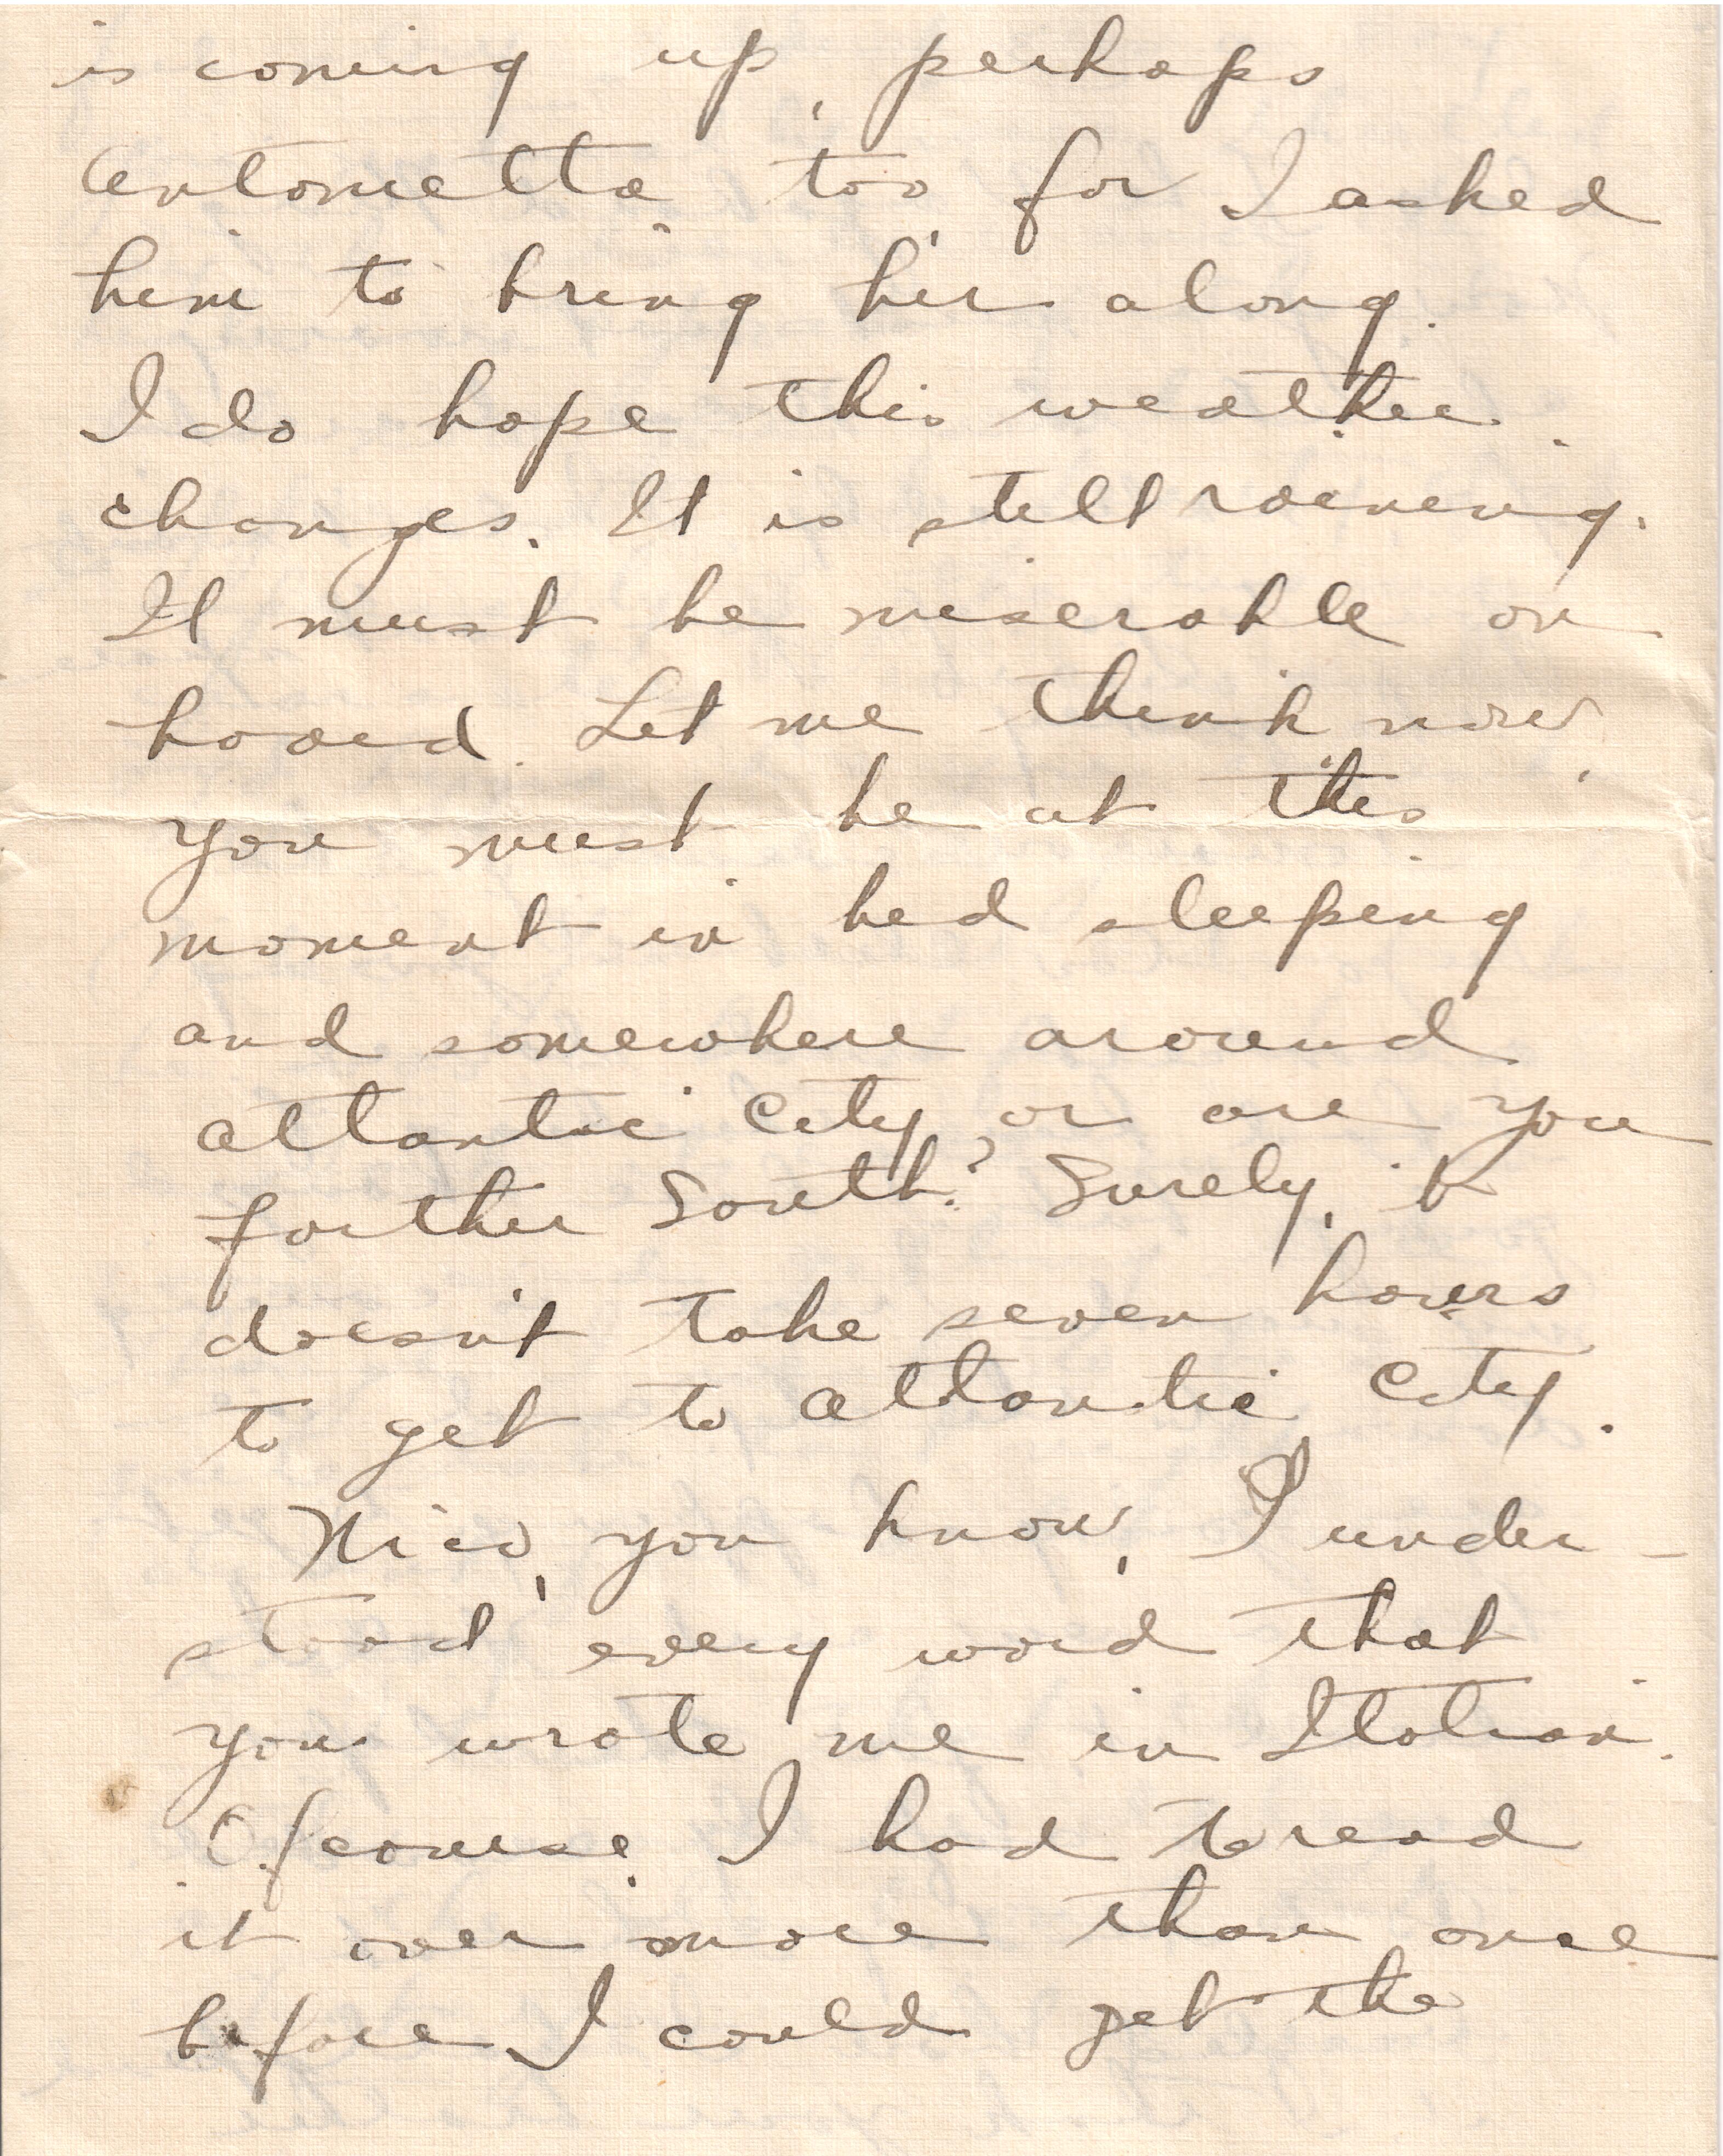 is coming up, perhaps
Antonietta too, for I asked
him to bring her along.
I do hope this weather
changes. It is still raining.
It must be miserable on
board. Let me think now,
you must be at this
moment in bed sleeping
and somewhere around
Atlantic City, or are you
farther South? Surely, it
doesn't take seven hours
to get to Atlantic City.
Nico, you know, I under-
stood every word that
you wrote me in Italian.
Of course, I had to read
it over more than once
before I could get the